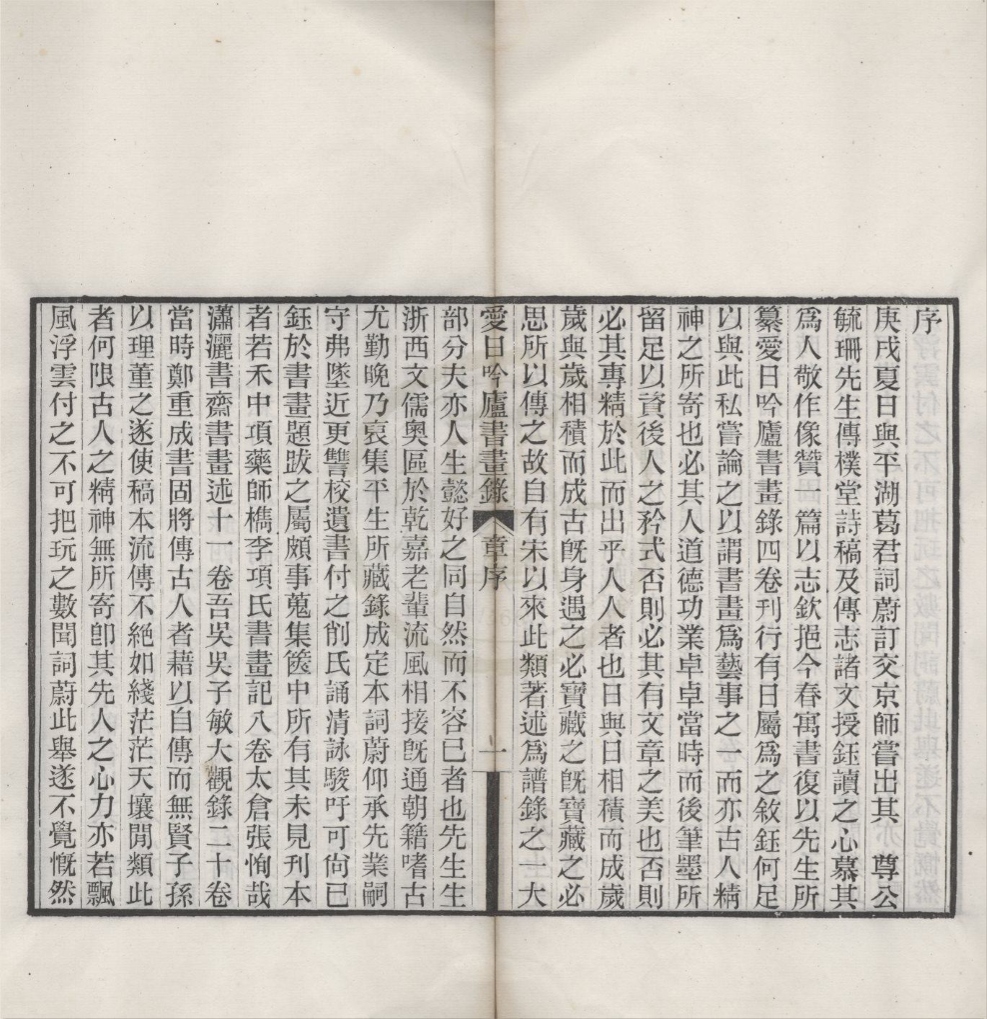 序
庚戌夏日與平湖葛君詞蔚訂交京師嘗出其　尊公
毓珊先生傳樸堂詩稿及傳志諸文授鈺讀之心慕其
爲人敬作像贊一篇以志欽挹今春寓書復以先生所
纂愛日吟廬書畫錄四卷刊行有日屬爲之敘鈺何足
以與此私嘗論之以謂書畫爲藝事之一而亦古人精
神之所寄也必其人道德功業卓卓當時而後筆墨所
留足以資後人之矜式否則必其有文章之美也否則
必其專精於此而出乎人人者也日與日相積而成歲
歲與歲相積而成古旣身遇之必寶藏之旣寶藏之必
思所以傳之故自有宋以來此類著述爲譜錄之一大
愛日吟廬書畫錄　章序　一
部分夫亦人生懿好之同自然而不容已者也先生生
浙西文儒奧區於乾嘉老輩流風相接旣通朝籍嗜古
尤勤晚乃裒集平生所藏錄成定本詞蔚仰承先業嗣
守弗墜近更讐校遺書付之削氏誦清詠駿吁可尙已
鈺於書畫題跋之屬頗事蒐集篋中所有其未見刊本
者若禾中項藥師檇李項氏書畫記八卷太倉張恂哉
瀟灑書齋書畫述十一卷吾吳吳子敏大觀錄二十卷
當時鄭重成書固將傳古人者藉以自傳而無賢子孫
以理董之遂使稿本流傳不絕如綫茫茫天壤閒類此
者何限古人之精神無所寄卽其先人之心力亦若飄
風浮雲付之不可把玩之數聞詞蔚此舉遂不覺慨然